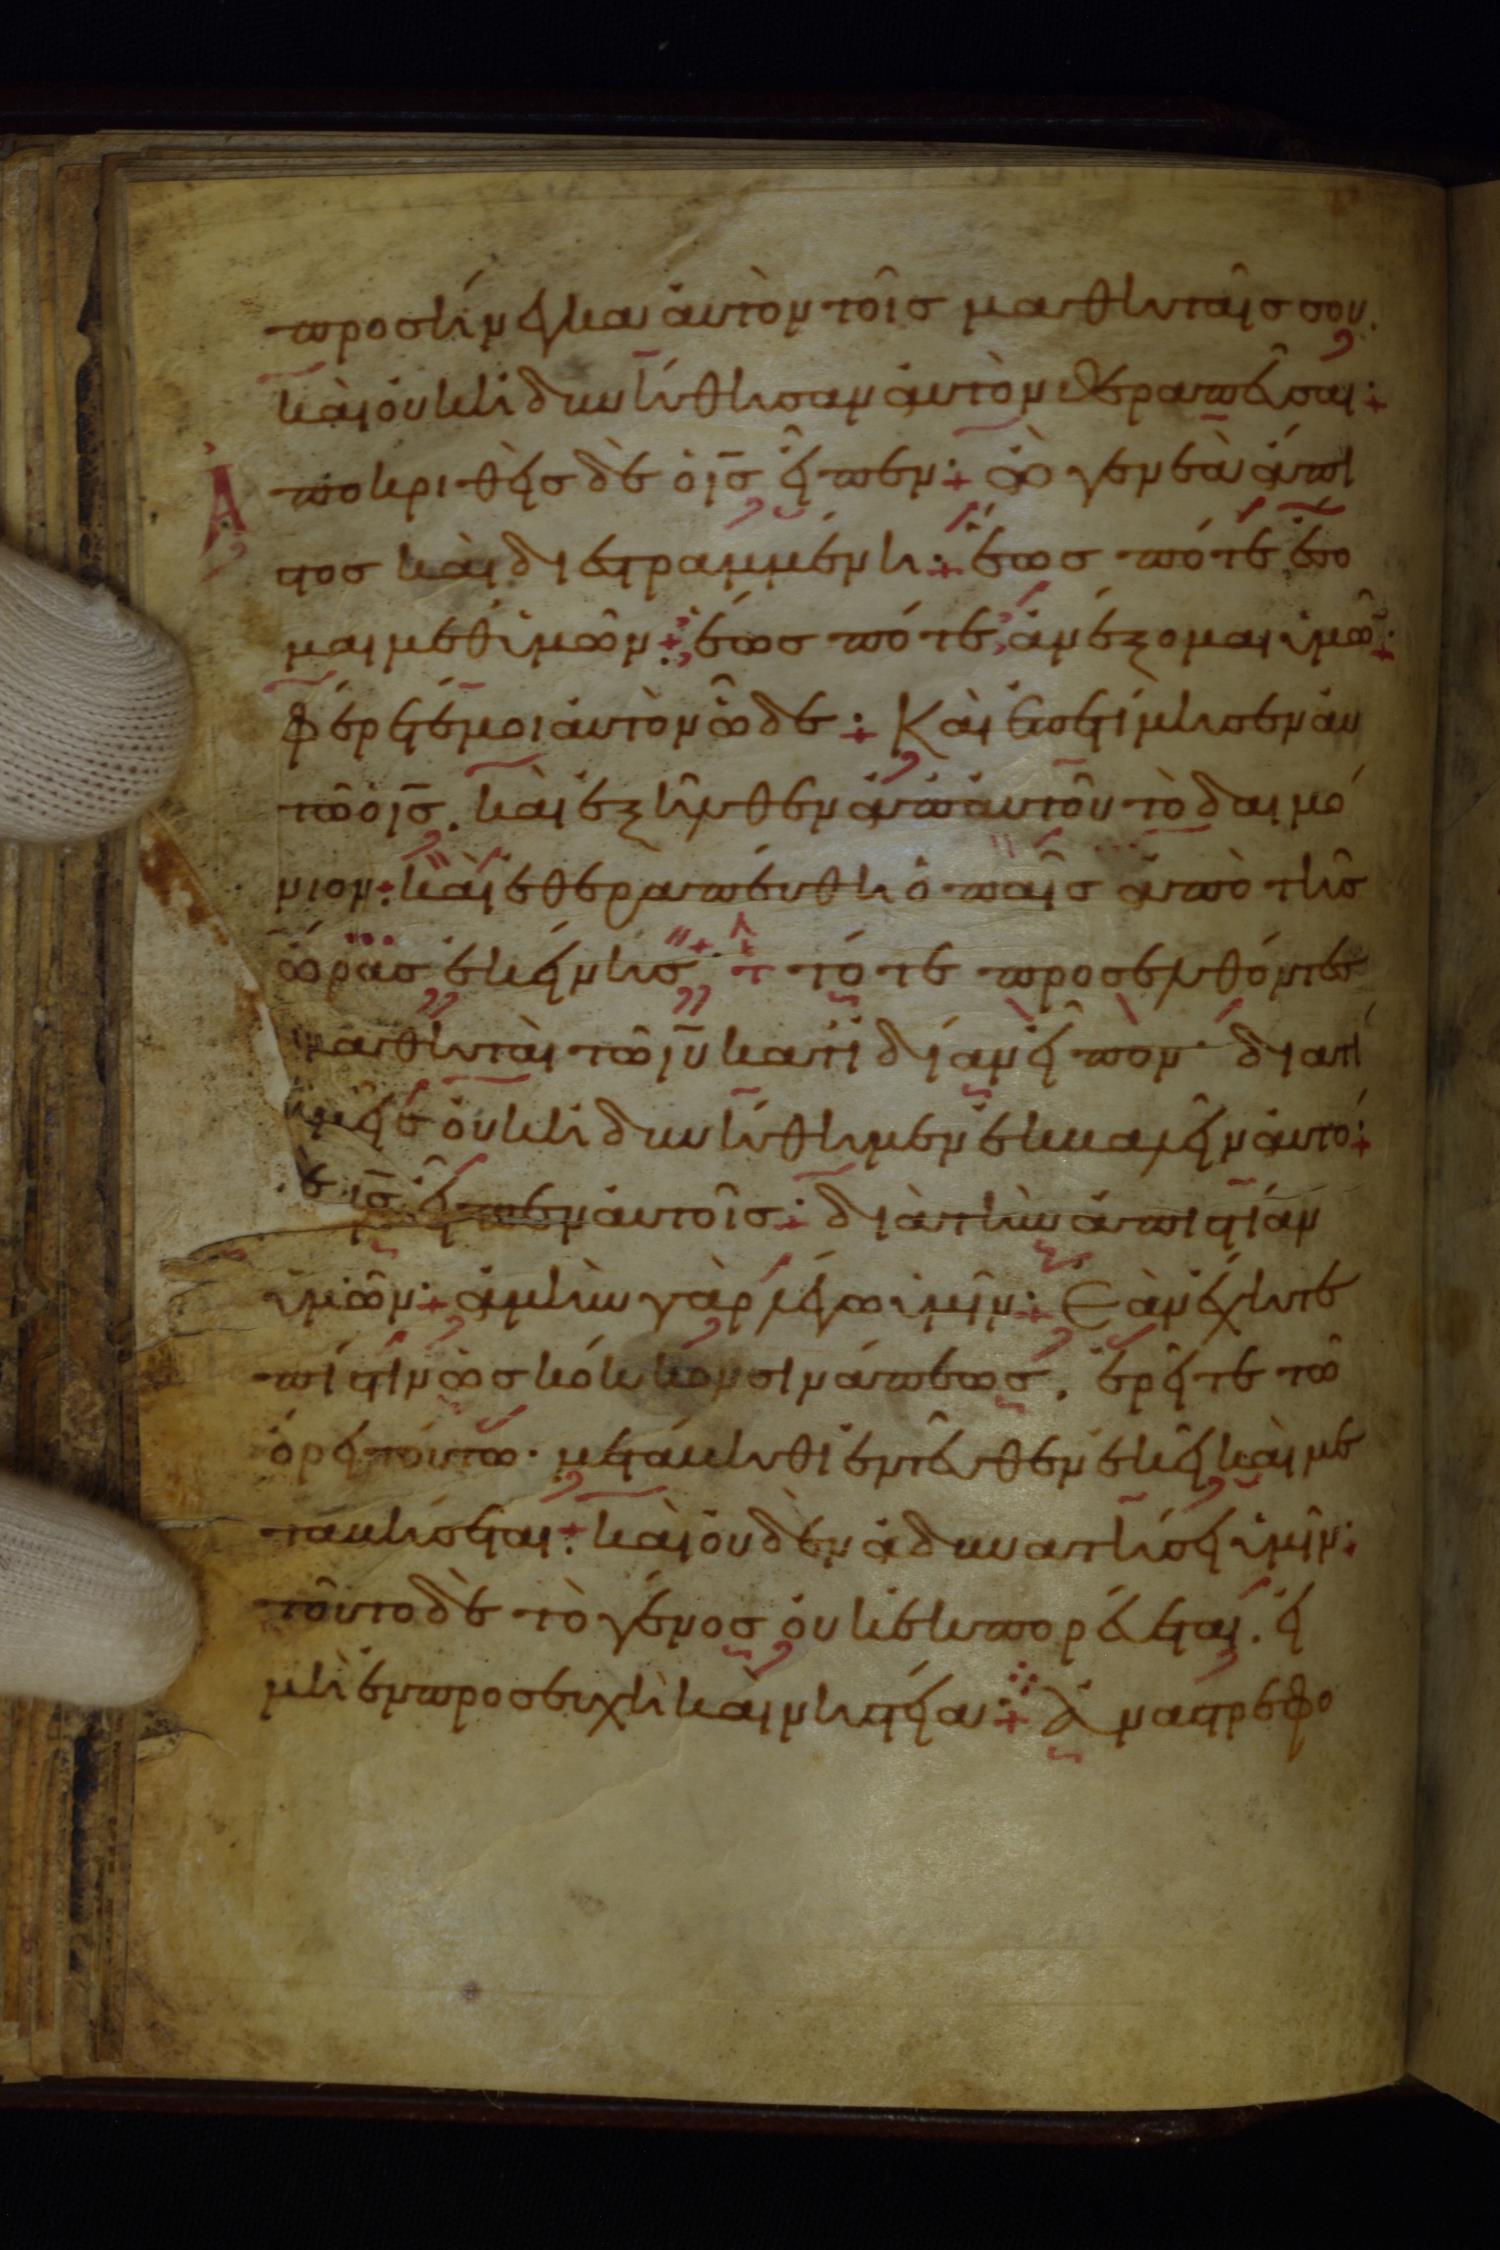 προσήνεγκα αὐτὸν τοῖς μαθηταῖς σου.
καὶ οὐκ ἠδυνήθησαν αὐτὸν θεραπεῦσαι:
Ἀποκριθεὶς δὲ ὁ ις εἶπεν: ὦ γενεὰ ἄπι
στος καὶ διεστραμμένη: ἕως πότε ἔσο
μαι μεθ' ὑμῶν: ἕως πότε ἀνέξομαι ὑμῶ:
φέρετέ μοι αὐτὸν ὧδε: Καὶ ἐπετίμησεν αὐ
τῶ ὁ ις. καὶ ἐξῆλθεν ἀπ' αὐτοῦ τὸ δαιμό
νιον: καὶ ἐθεραπεύθη ὁ παῖς ἀπὸ τῆς
ὥρας ἐκείνης τότε προσελθόντες
μαθηταὶ τῶ ιυ κατ' ἰδίαν εἶπον· διατί
ἡμεῖς οὐκ ἠδυνήθημεν ἐκβαλεῖν αὐτό:
ις εἶπεν αὐτοῖς: διὰ τὴν ἀπιστίαν
ὑμῶν: ἀμὴν γὰρ λέγω ὑμῖν: Ἐὰν ἔχητε
πίστιν ὡς κόκκον σινάπεως. ἐρεῖτε τῶ
ὄρει τούτω· μετάβηθι ἐντεῦθεν ἐκεῖ καὶ με
ταβήσεται: καὶ οὐδὲν ἀδυνατήσει ὑμῖν:
τοῦτο δὲ τὸ γένος οὐκ ἐκπορεύεται. εἰ
μὴ ἐν προσευχῆ καὶ νηστεία: Ἀναστρεφο